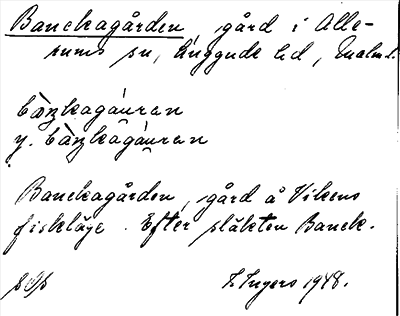 Banckagården, gård i Alle-
rums sn, Luggude hd, Malm.l.
bàŋkagáuran
y. bàŋkagáuran
Banckagården, gård å Vikens
fiskläge. Efter släkten Banck.
I. Ingers 1948.